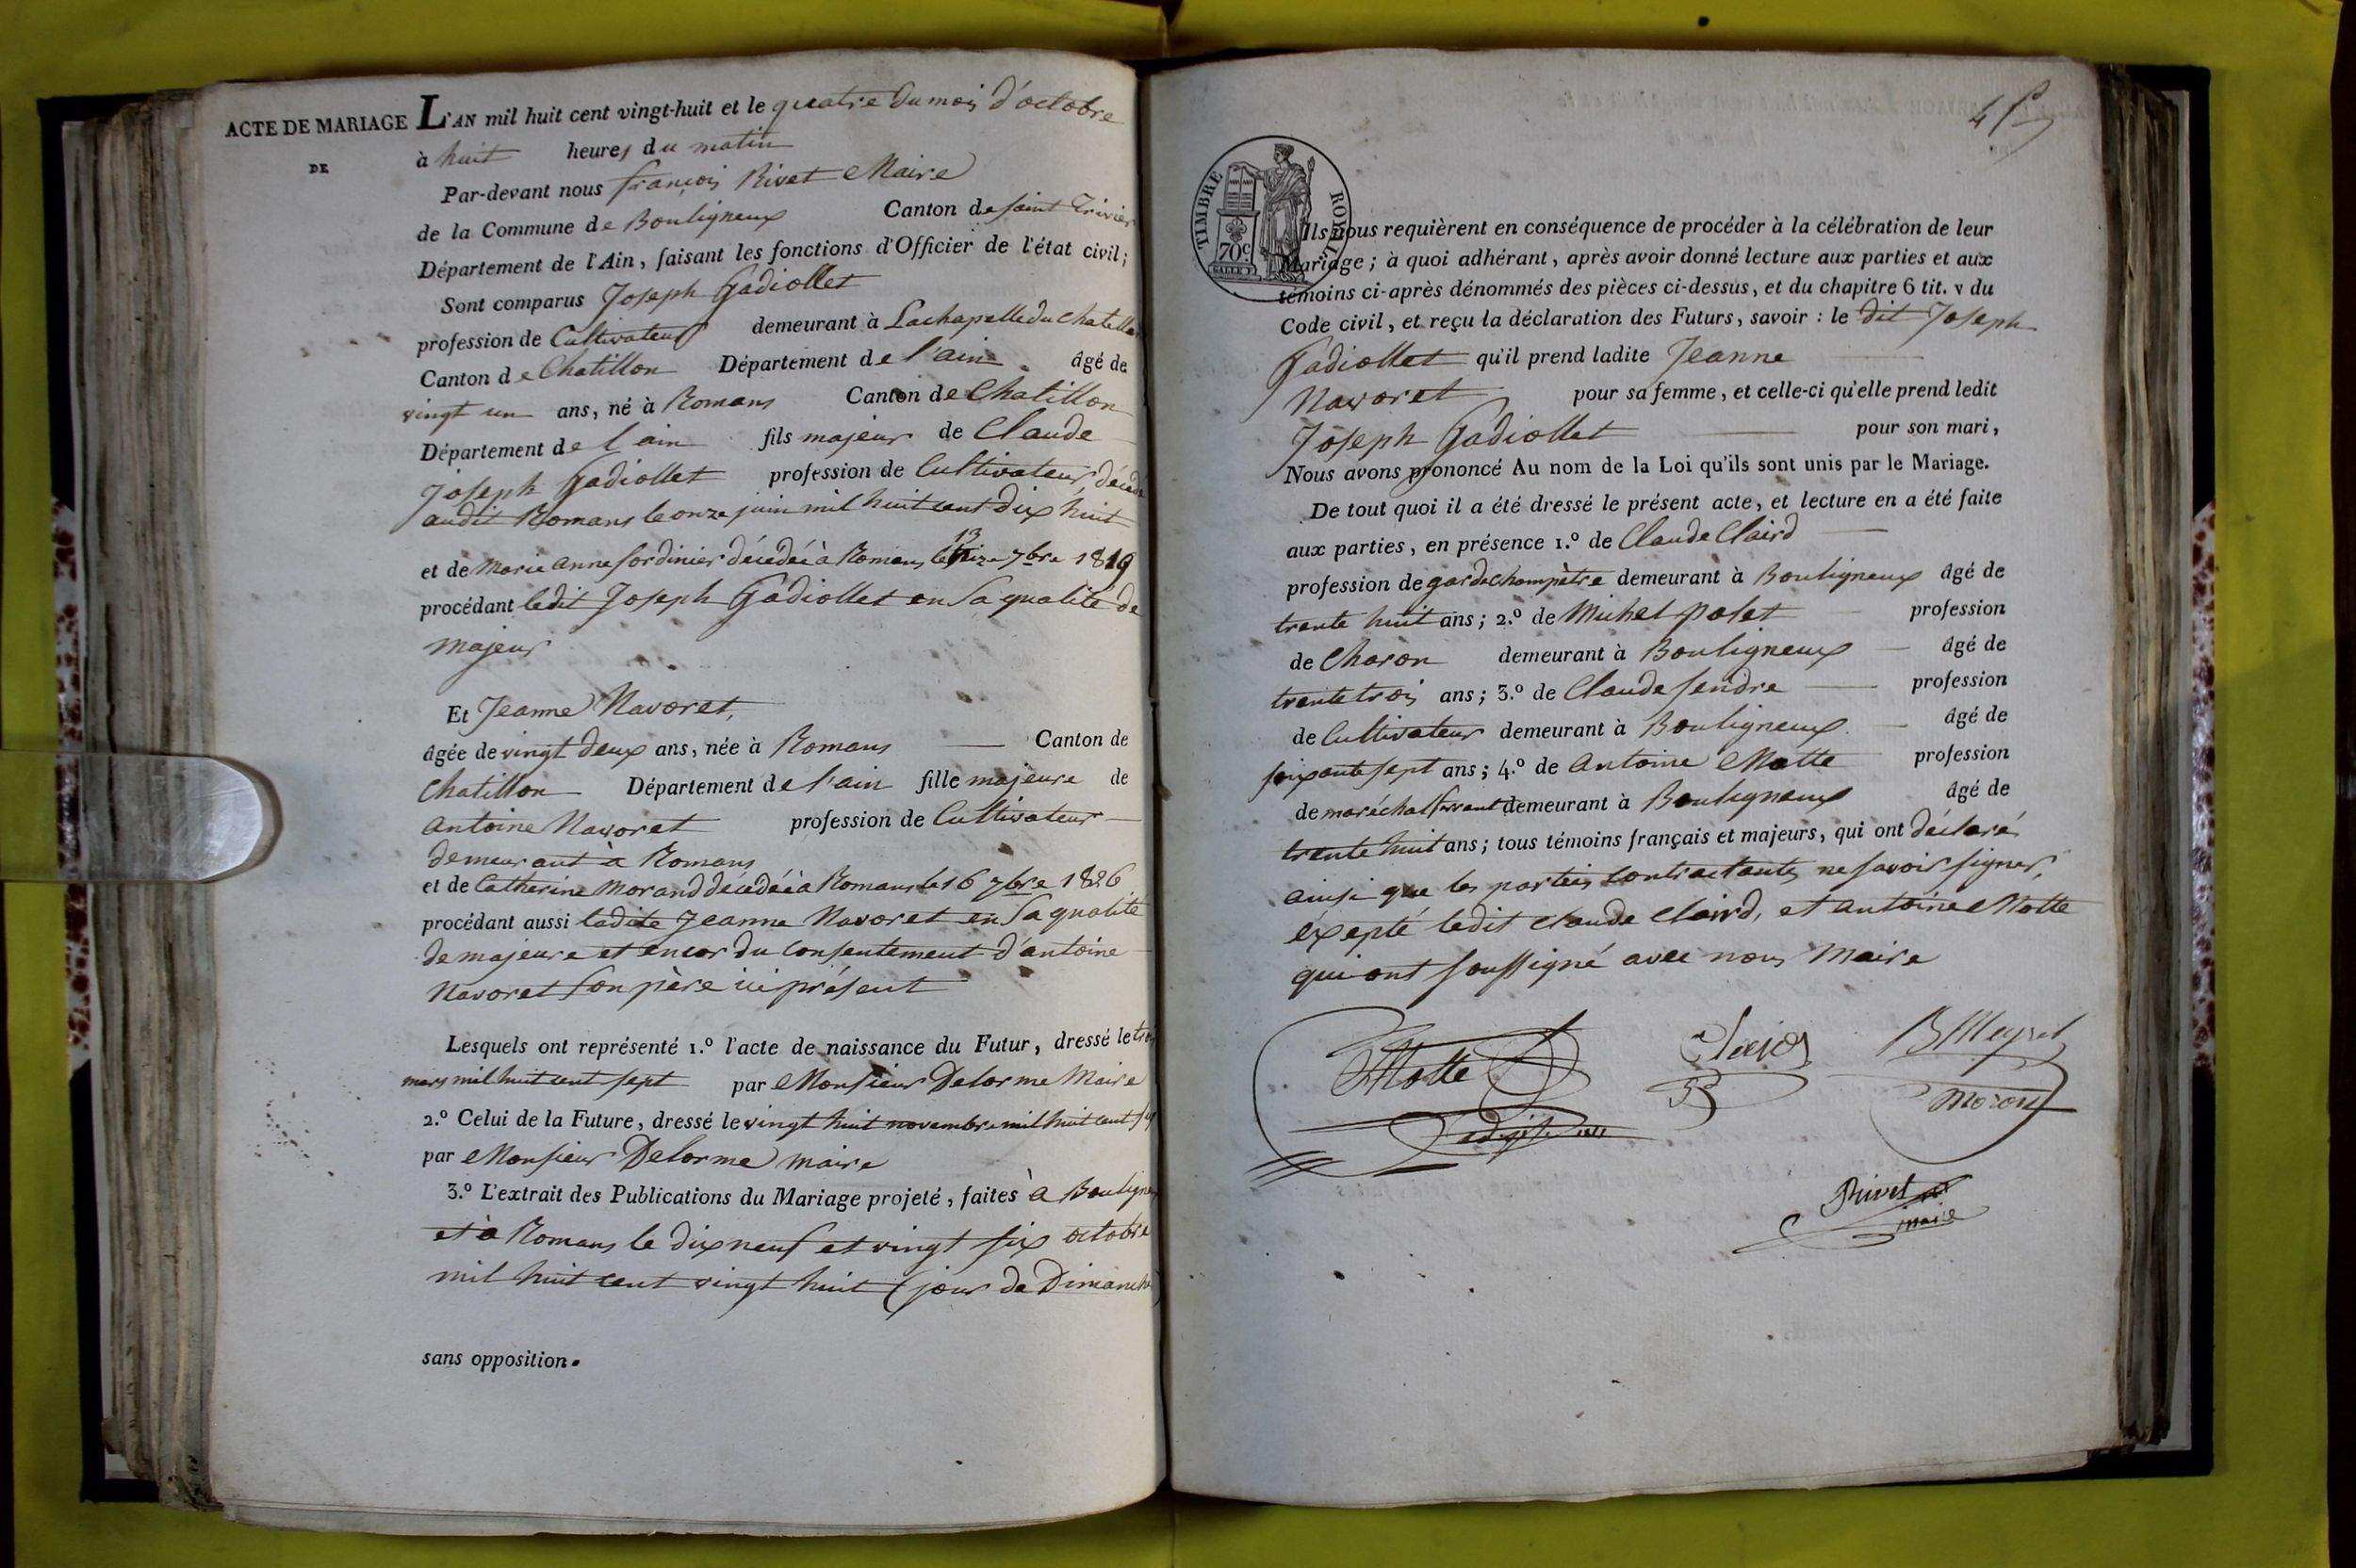 ACTE DE MARIAGE
DE
L'AN mil huit cent vingt-huit et le quatre du mois d'octobre
à huit heures du matin
Par-devant nous françois Rivet Maire
de la Commune de Bouligneux Canton de saint Trivier
Département de l'Ain, faisant les fonctions d'Officier de l'état civil;
Sont comparus Joseph Gadiollet
profession de Cultivateur demeurant à Lachapelle du chatellar
Canton de Chatillon Département de l'ain âgé de
vingt un ans, né à Romans Canton de Chatillon
Département de l'ain fils majeur de Claude
Joseph Gadiollet profession de Cultivateur, décédé
audit Romans le onze juin mil huit cent dix huit
et de Marie Anne Sordinier décédée à Romans le 13 7bre 1819
procédant ledit Joseph Gadiollet en sa qualité de
majeur
Et Jeanne Navoret,
âgée de vingt deux ans, née à Romans Canton de
Chatillon Département de l'ain fille majeure de
Antoine Navoret profession de Cultivateur
demeurant à Romans
et de Catherine Morand décédée à Romans le 16 7bre 1826
procédant aussi ladite Jeanne Navoret en sa qualité
de majeure et encor du consentement d'antoine
Navoret son père ici présent
Lesquels ont représenté 1.º l'acte de naissance du Futur, dressé le
mars mil huit cent sept par Monsieur Delorme Maire
2.º Celui de la Future, dressé le vingt huit novembre mil huit cent
par Monsieur Delorme maire
3.º L'extrait des Publications du Mariage projeté, faites à Bouligneux
et à Romans le dix neuf et vingt six octobre
mil huit cent vingt huit (jour de Dimanche)
sans opposition.
TIMBRE ROYAL
70c
Ils nous requièrent en conséquence de procéder à la célébration de leur
Mariage; à quoi adhérant, après avoir donné lecture aux parties et aux
témoins ci-après dénommés des pièces ci-dessus, et du chapitre 6 tit. v du
Code civil, et reçu la déclaration des Futurs, savoir : le dit Joseph
Gadiollet qu'il prend ladite Jeanne
Navoret pour sa femme, et celle-ci qu'elle prend ledit
Joseph Gadiollet pour son mari,
Nous avons prononcé Au nom de la Loi qu'ils sont unis par le Mariage.
De tout quoi il a été dressé le présent acte, et lecture en a été faite
aux parties, en présence 1.º de Claude Claird
profession de gardechampètre demeurant à Bouligneux âgé de
trente huit ans; 2.º de Michel polet profession
de Charon demeurant à Bouligneux âgé de
trente trois ans; 3.º de Claude Sendre profession
de Cultivateur demeurant à Bouligneux âgé de
soixante sept ans; 4.º de Antoine Motte profession
de maréchal ferrant demeurant à Bouligneux âgé de
trente huit ans; tous témoins français et majeurs, qui ont déclaré
ainsi que les parties contractantes ne savoir signer,
éxepté ledit Claude Claird, et Antoine Motte
qui ont soussigné avec nous Maire
Motte
Rivet
maire